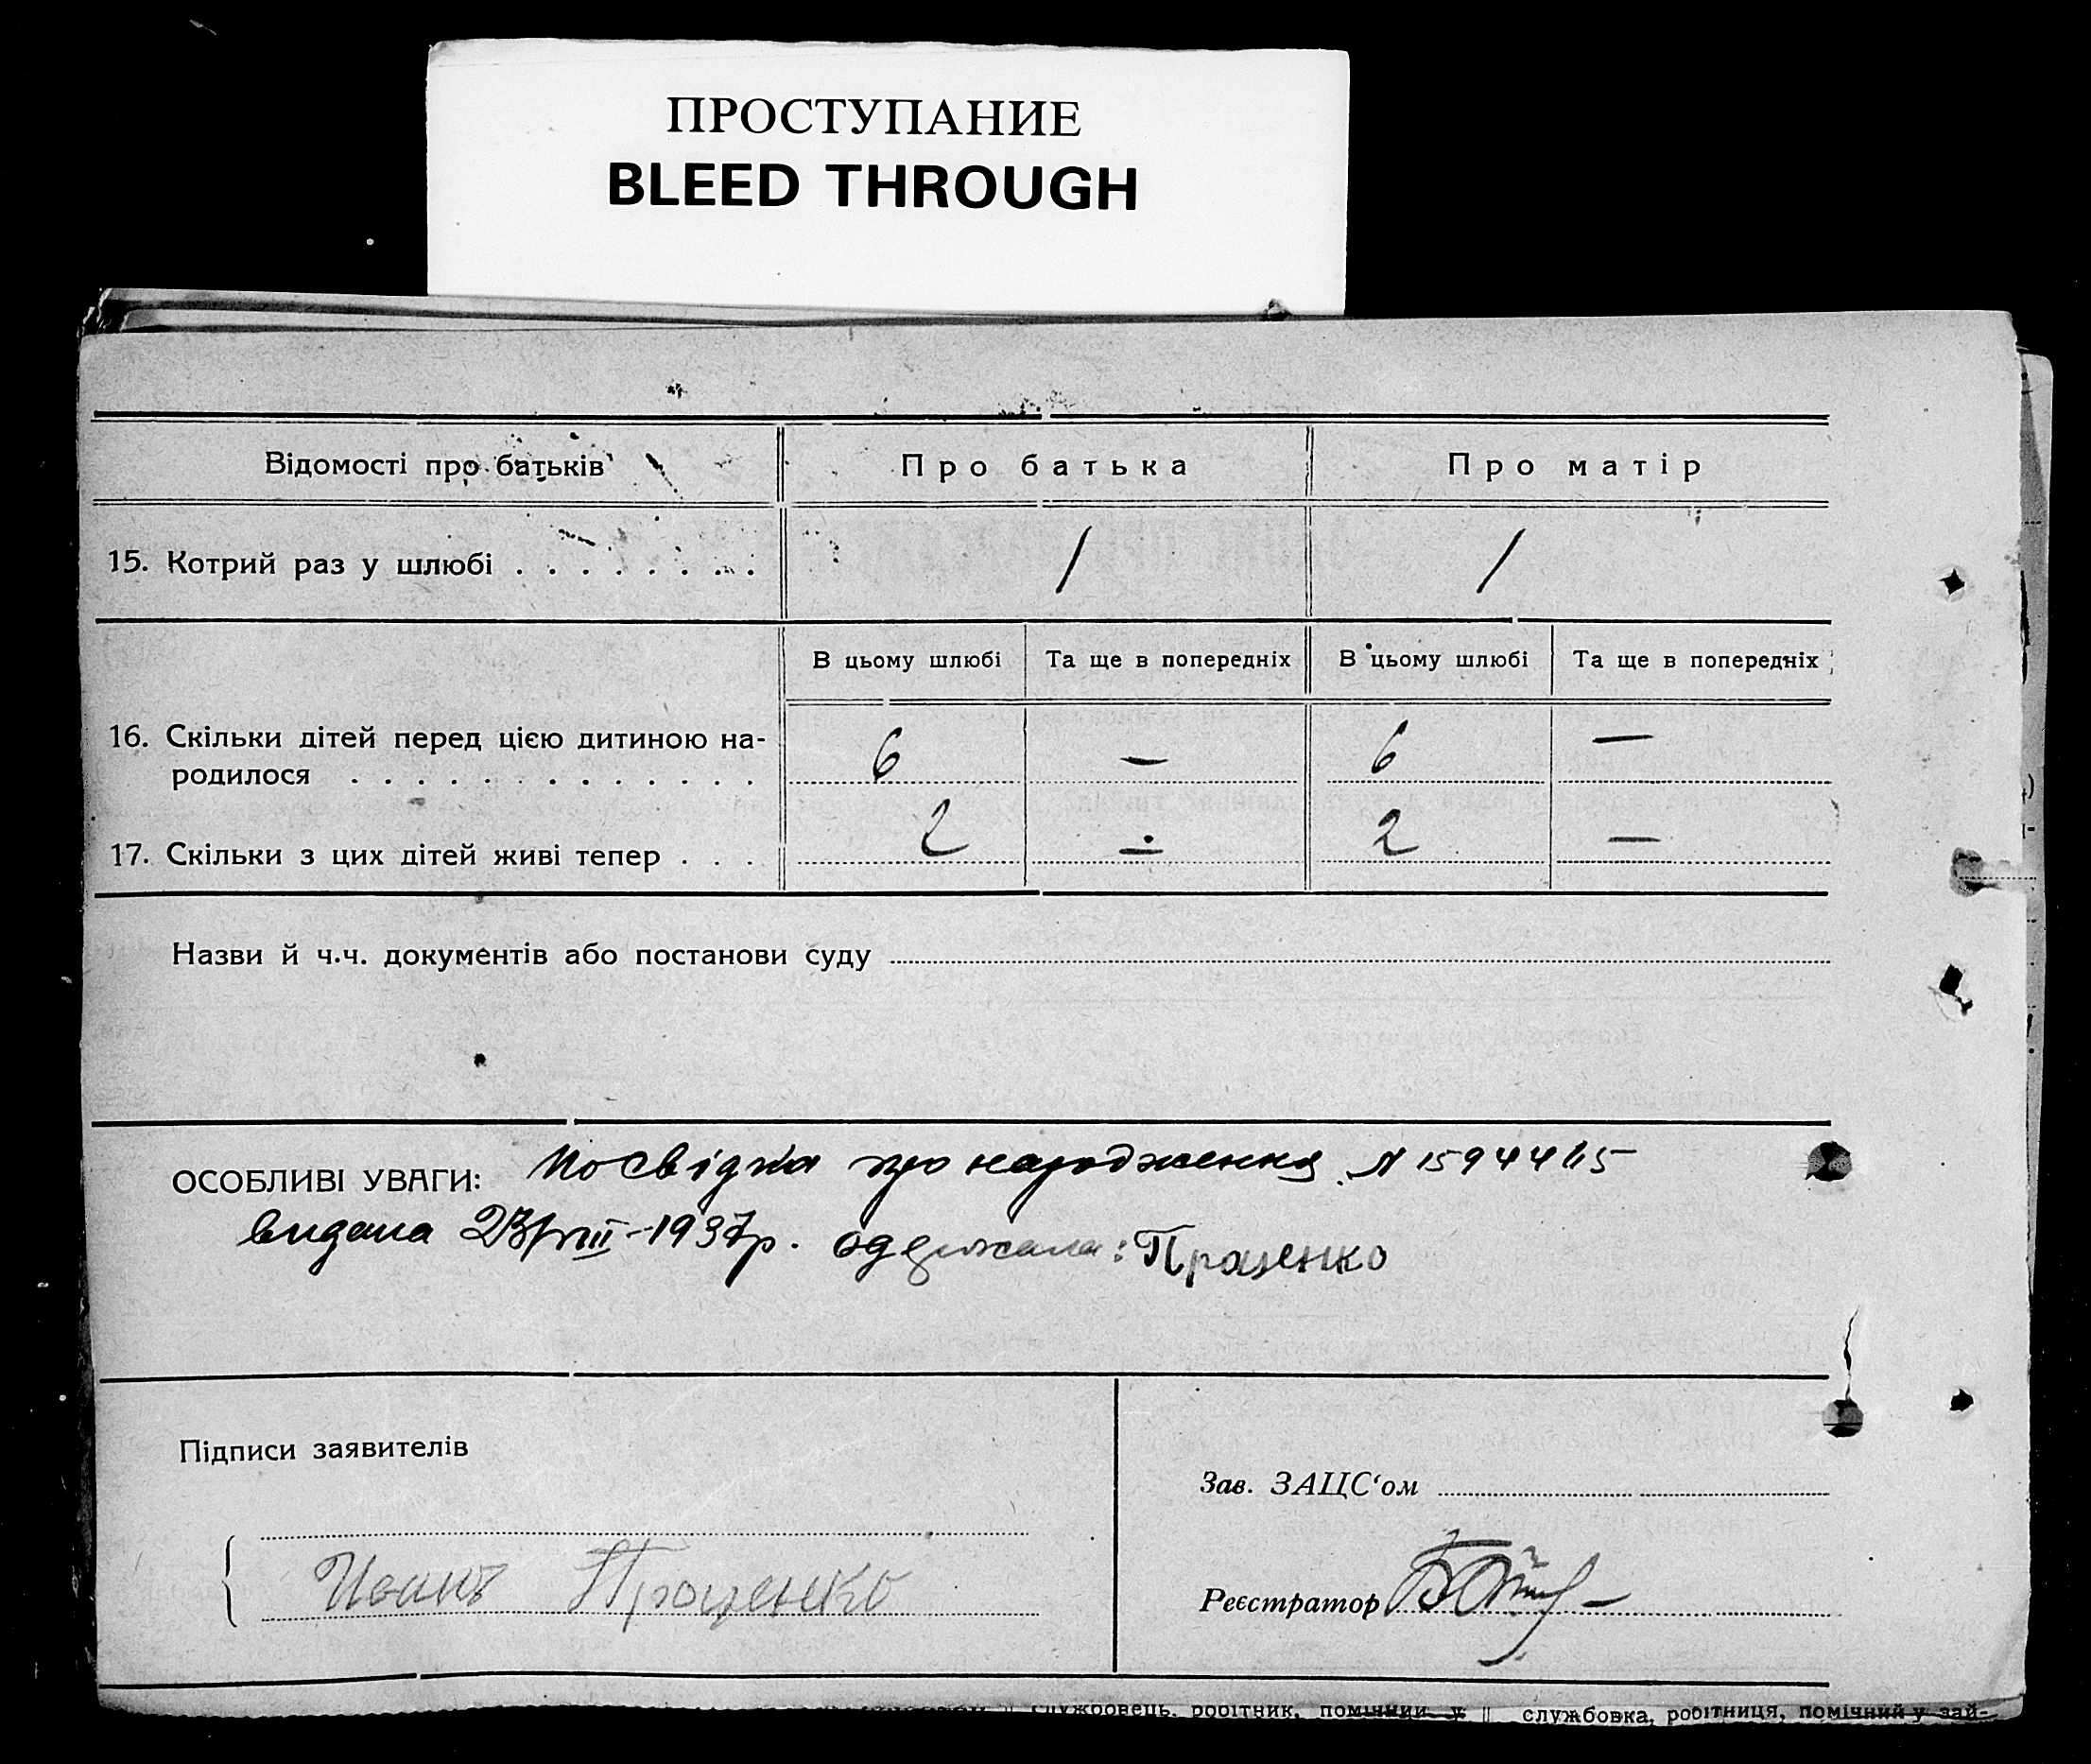 ПРОСТУПАНИЕ
BLEED THROUGH
Відомості про батьків
Про батька
Про матір
15. Котрий раз у шлюбі . . . . . . . .
/
/
В цьому шлюбі
Та ще в попередніх
В цьому шлюбі
Та ще в попередніх
16. Скільки дітей перед цією дитиною на-
родилося . . . . . . . . . . . . .
6
—
6
—
17. Скільки з цих дітей живі тепер . . .
2
—
2
—
Назви й ч.ч. документів або постанови суду
ОСОБЛИВІ УВАГИ: Посвідка про народження N
видана 23/VIII-1937р. одержала: Проценко
Підписи заявителів
Зав. ЗАЦС‘ом
Проценко
Реєстратор
службовець, робітник, помічний у
службовка, робітниця, помічний у зай-